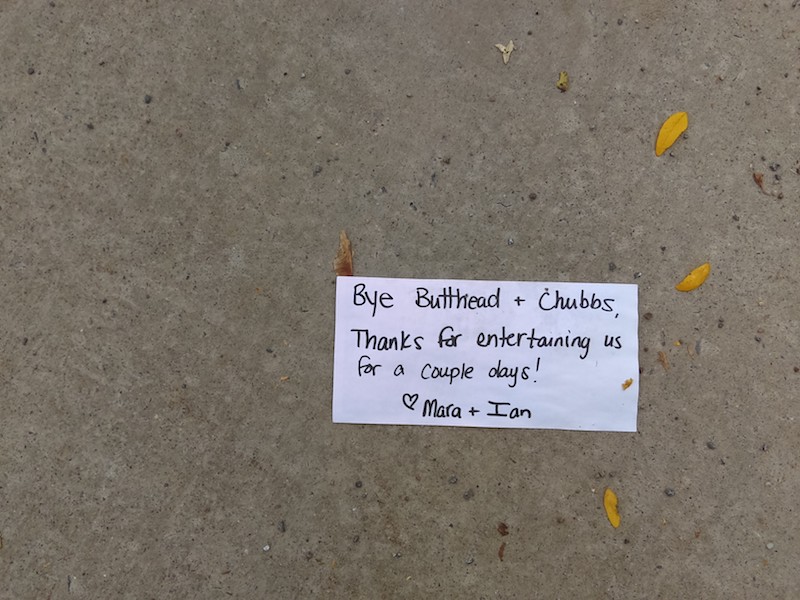 Bye Butthead + Chubbs,
Thanks for entertaining us
for a couple days!
♡ Mara + Ian